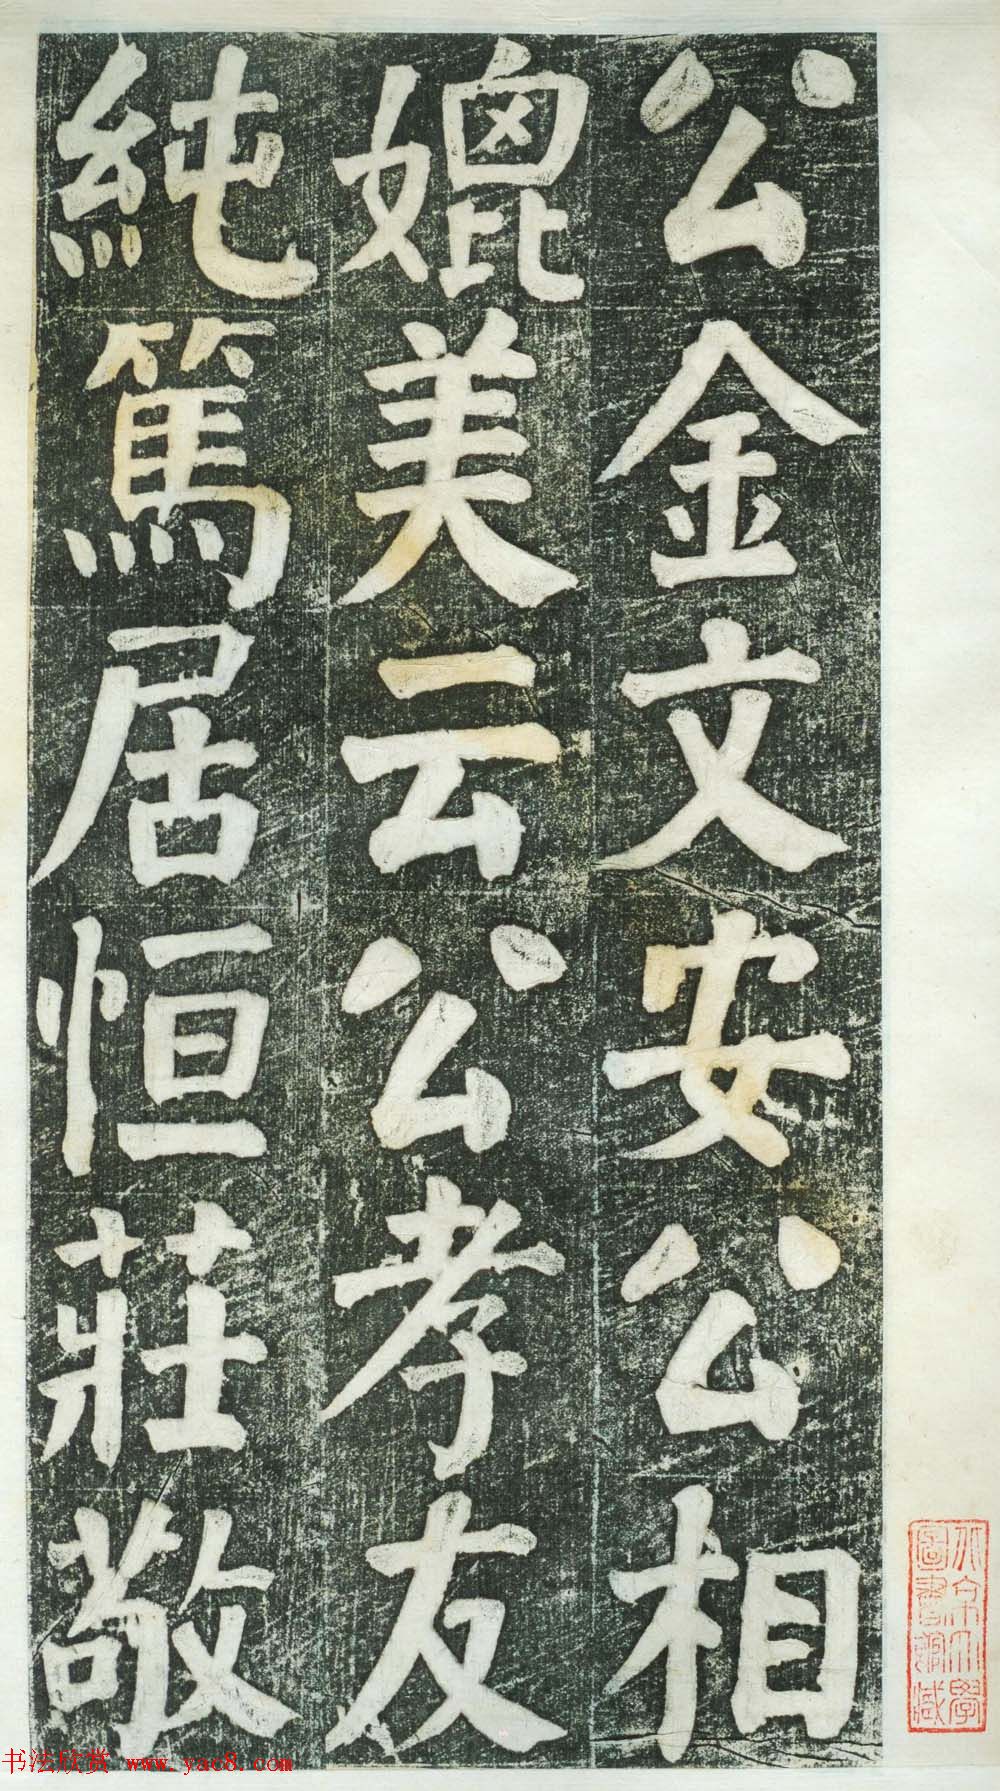 公金文安公相
媲美云公孝友
純篤居恒莊敬
北京大學
圖書館藏
书法欣赏 www.yac8.com